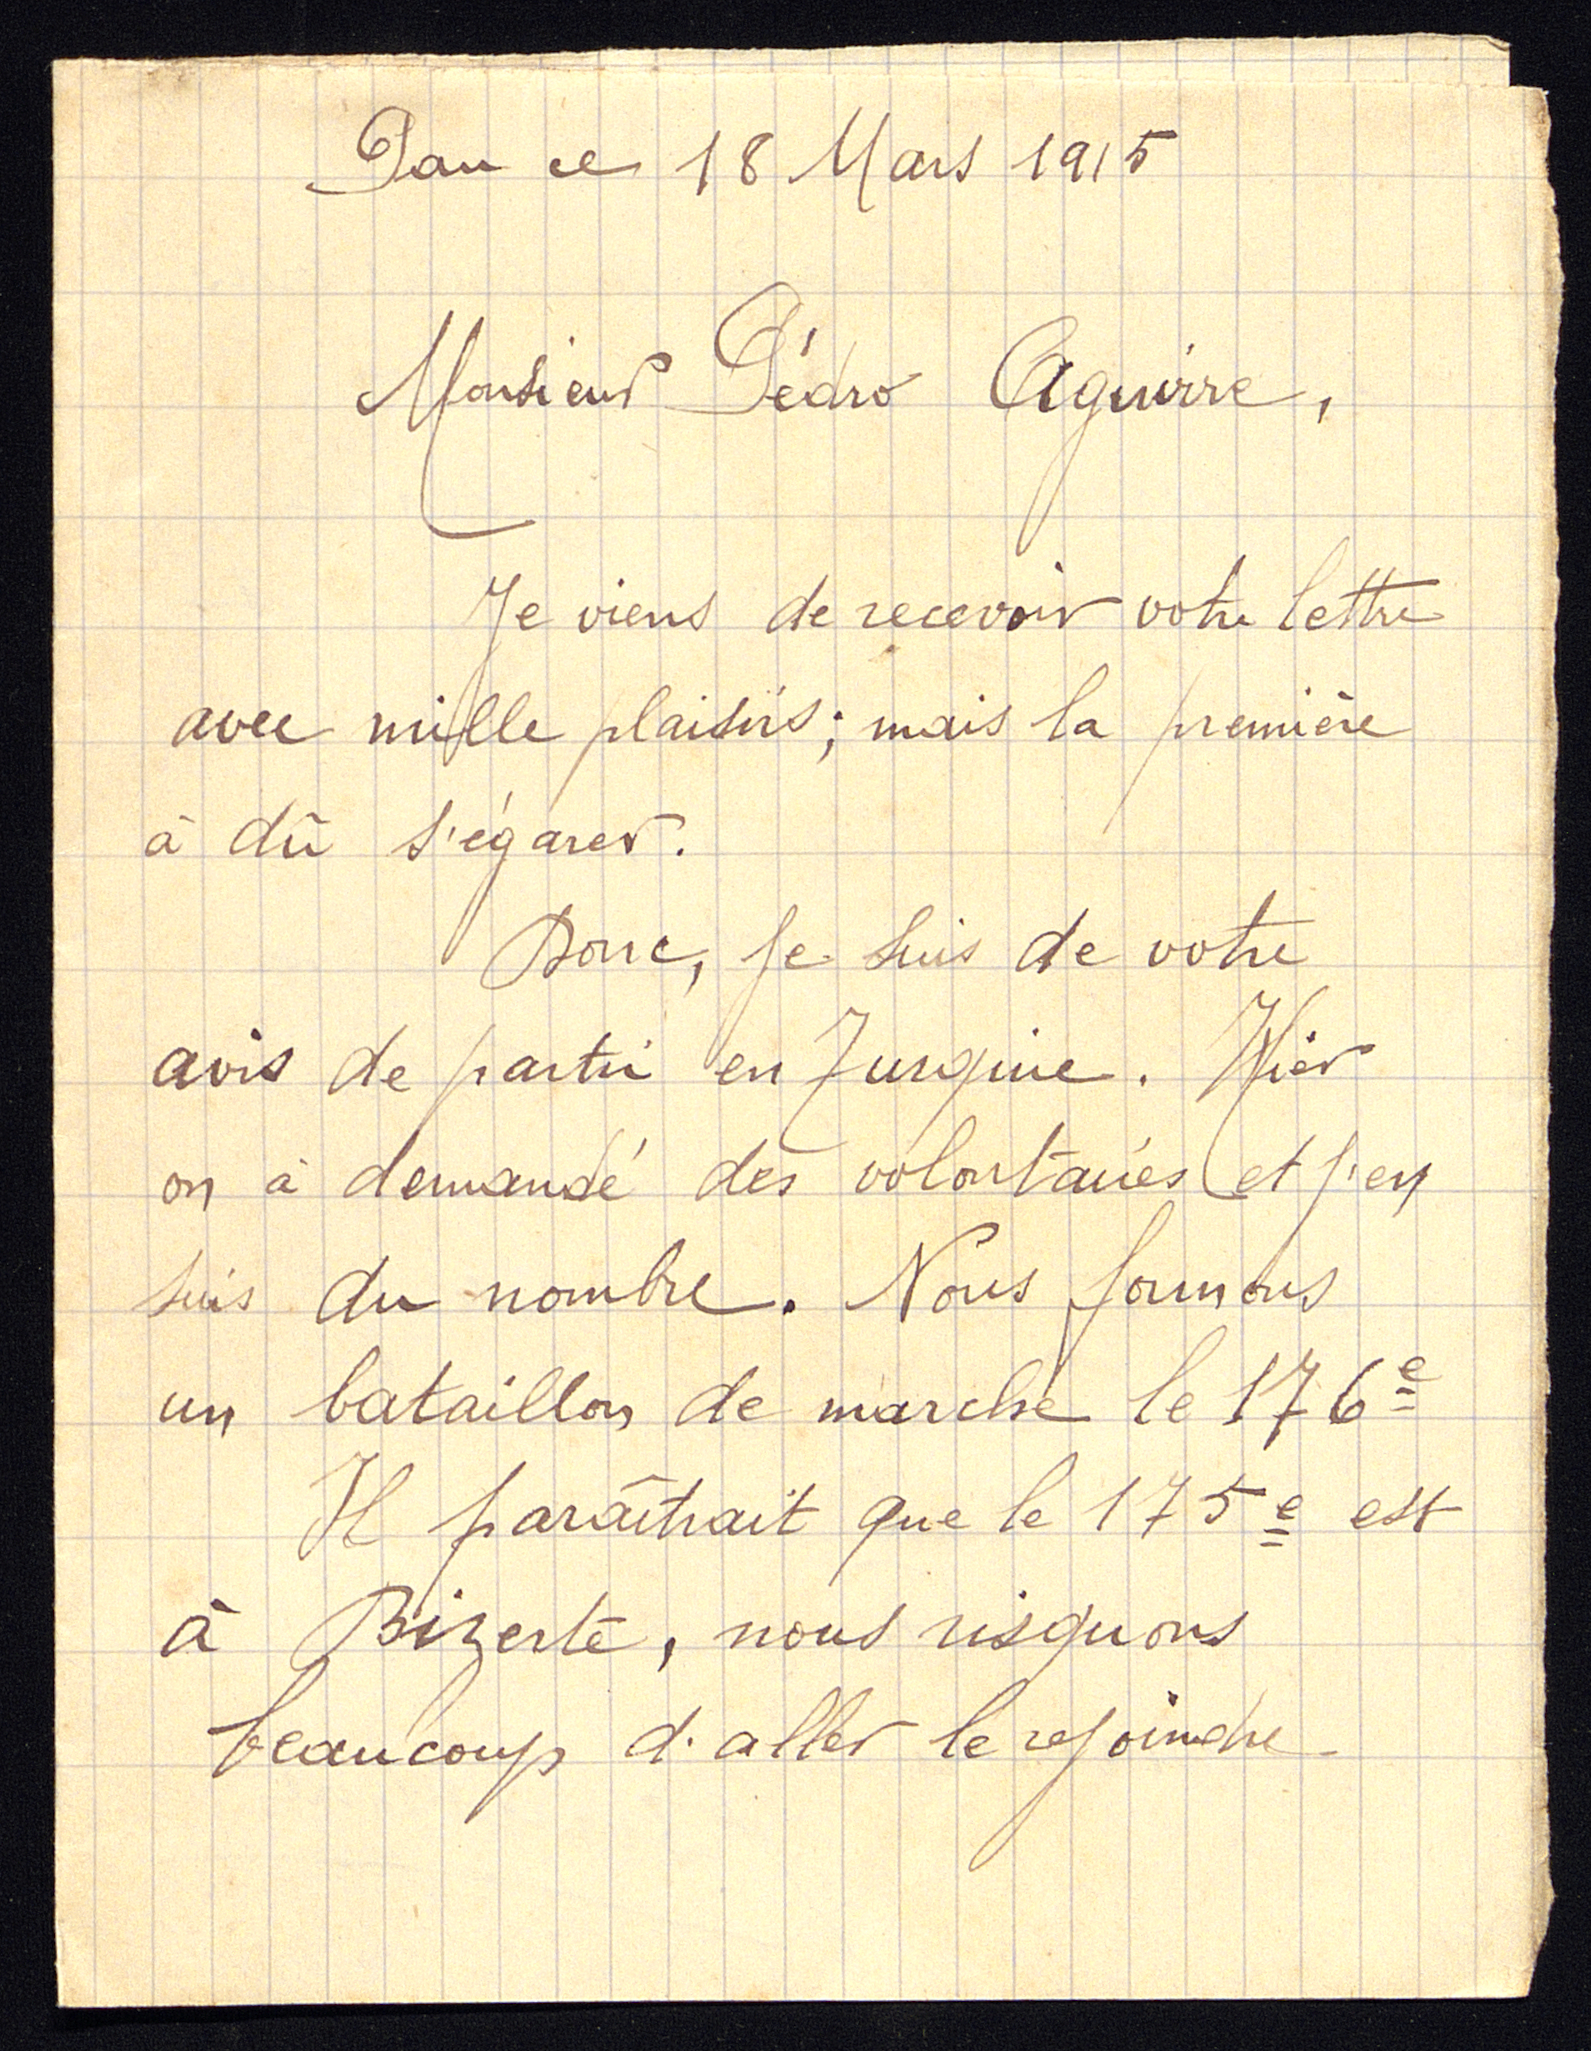 Pau ce 18 Mars 1915
Monsieur Pédro Aguirre,
Je viens de recevoir votre lettre
avec mille plaisirs; mais la première
à dû s'égarer.
Donc, je suis de votre
avis de partir en Turquie. Hier
on à demandé des volontaires et j'en
suis du nombre. Nous formons
un bataillon de marche le 176e
Il paraîtrait que le 175e est
à Bizerte, nous risquons
beaucoup d'aller le rejoindre